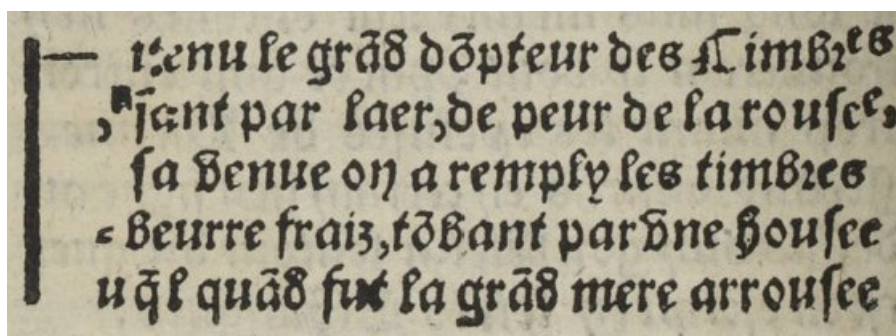 :enu le grãd dõpteur des Cimbres
sant par laer, de peur de la rousee,
sa venue on a remply les timbres
beurre fraiz, tõbant par vne housee
uq̃l quãd fut la grãd mere arrousee